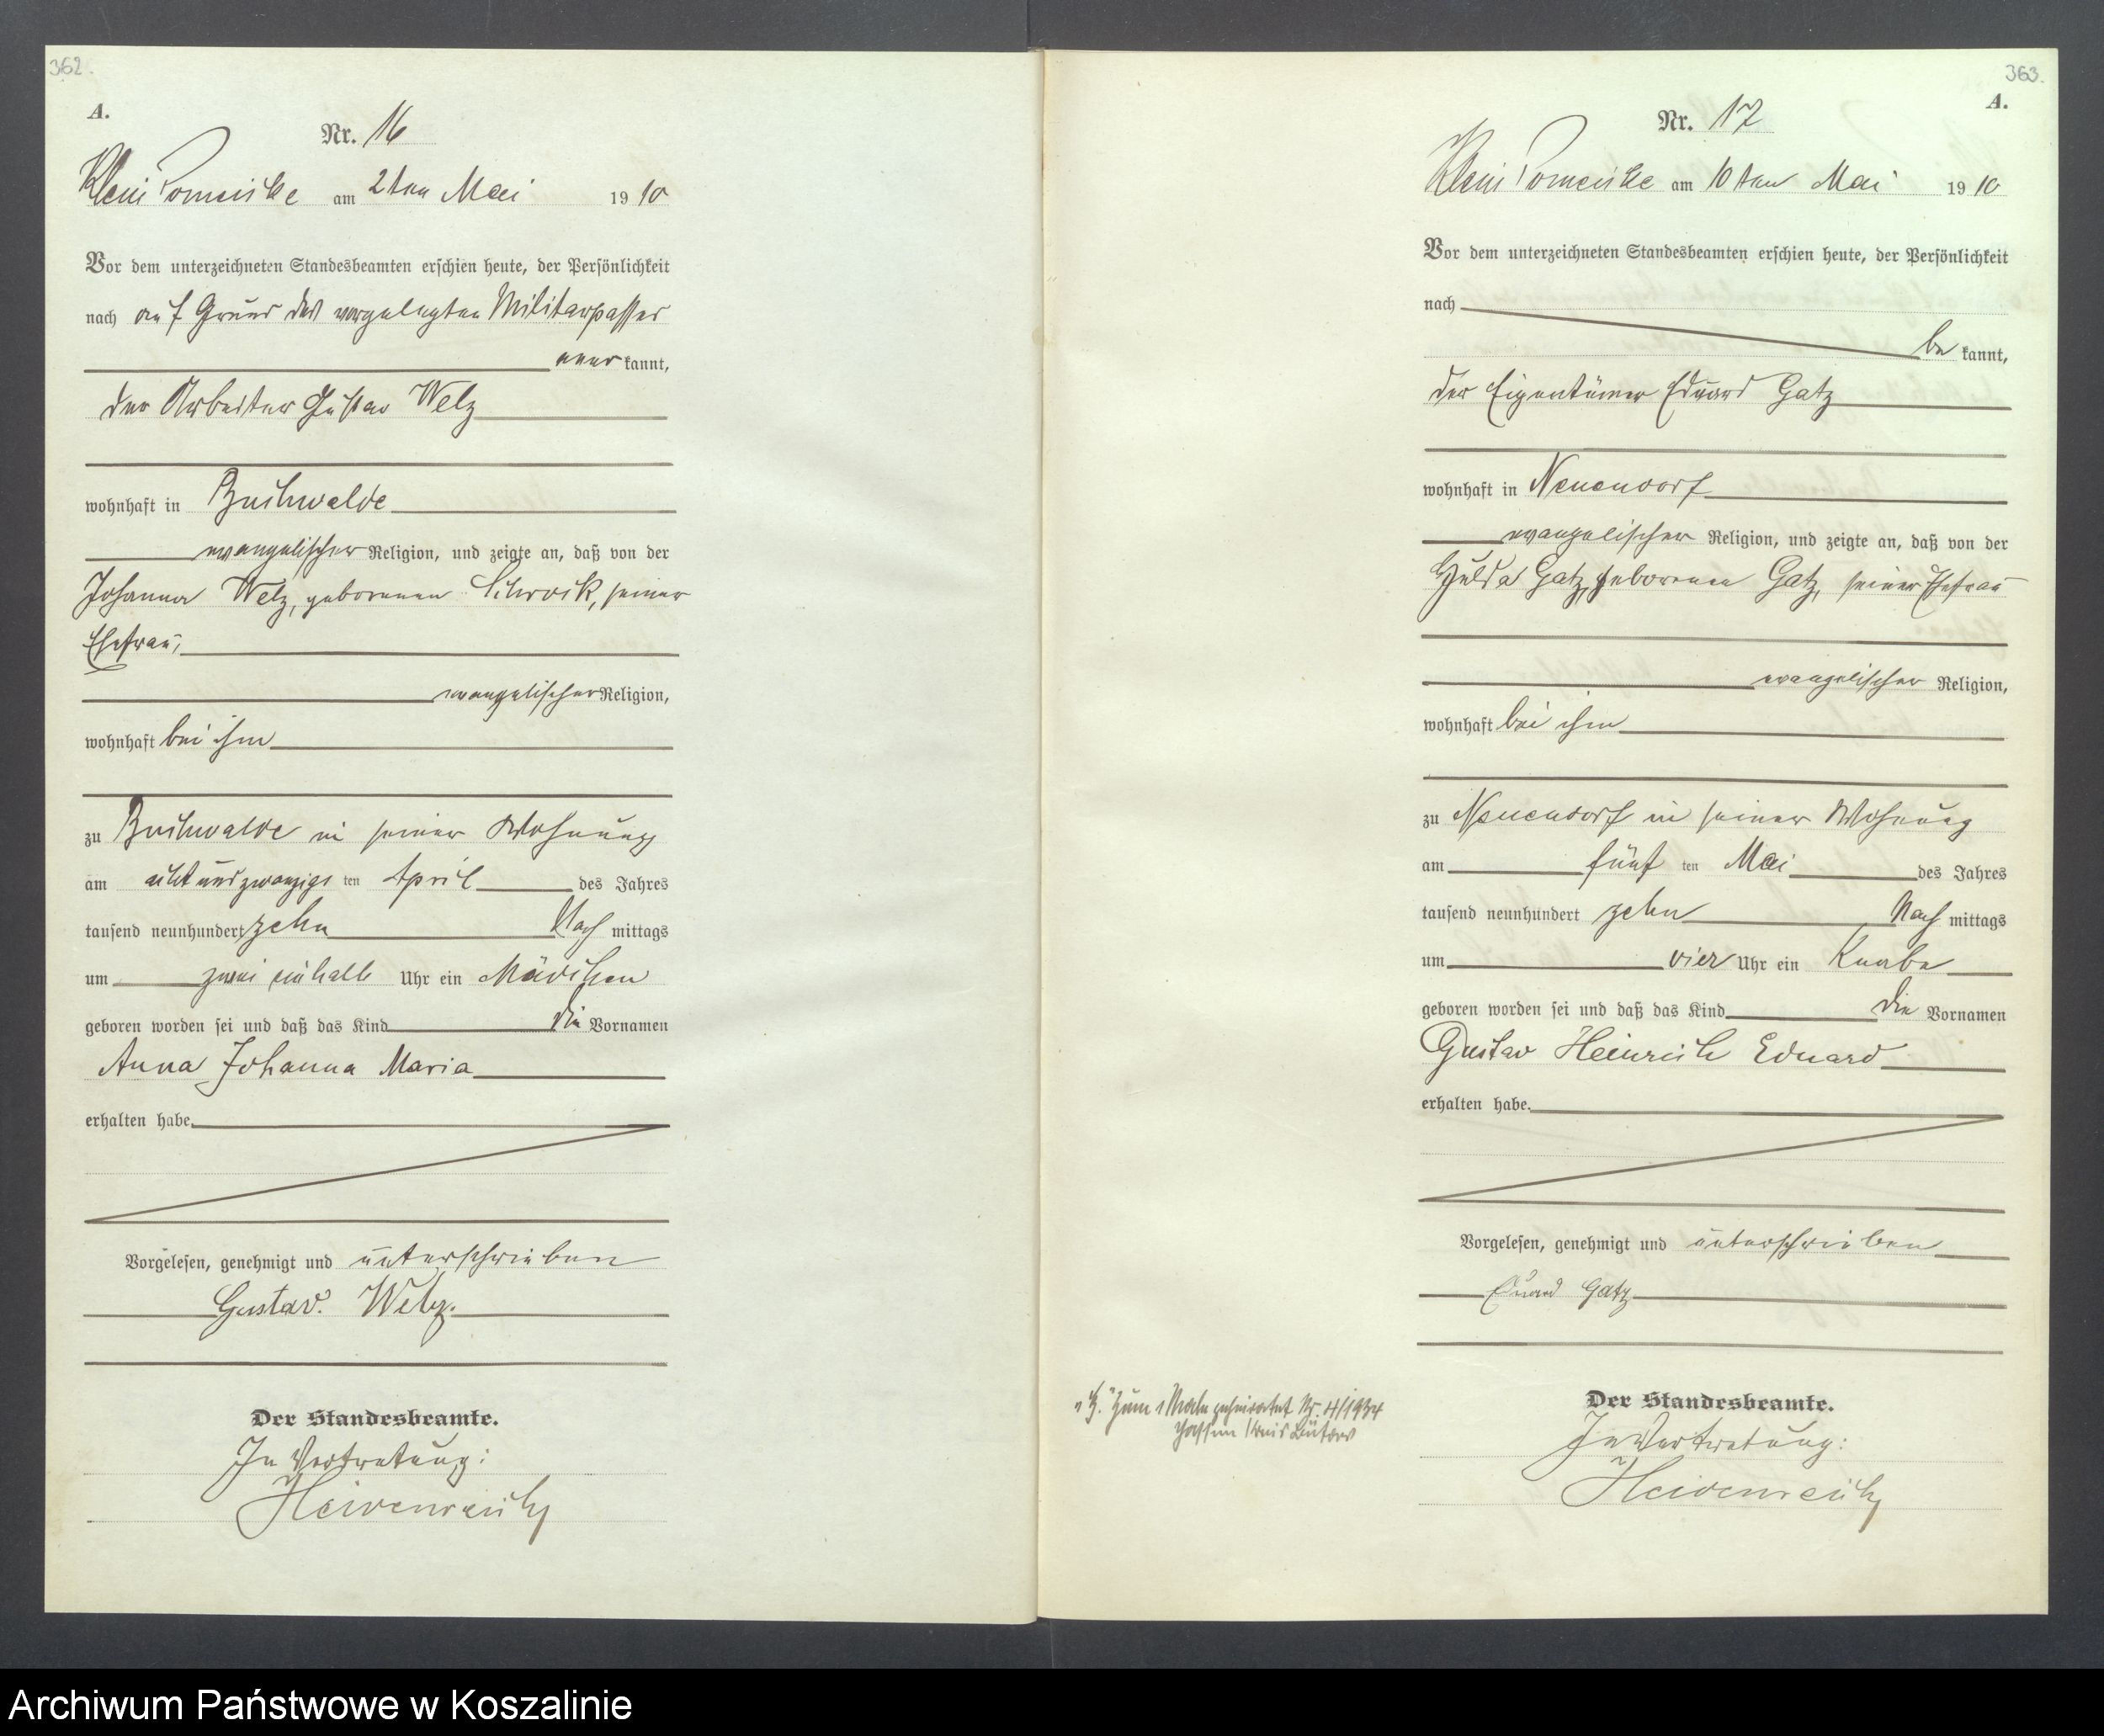 362.
A.
Nr. 16
Klein Pomeiske am 2ten Mai 1910
Vor dem unterzeichneten Standesbeamten erschien heute, der Persönlichkeit
nach auf Grund des vorgelegten Militärpasses
aner kannt,
der Arbeiter Gustav Welz
wohnhaft in Buchwalde
evangelischer Religion, und zeigte an, daß von der
Johanna Welz, geborenen Schrock, seiner
Ehefrau,
evangelischer Religion,
wohnhaft bei ihm
zu Buchwalde in seiner Wohnung
am achtundzwanzigs ten April des Jahres
tausend neunhundert zehn Nach mittags
um zwei einhalb Uhr ein Mädchen
geboren worden sei und daß das Kind die Vornamen
Anna Johanna Maria
erhalten habe.
Vorgelesen, genehmigt und unterschrieben
Gustav. Welz.
Der Standesbeamte.
In Vertretung:
Heidenreich
363.
A.
Nr. 17
Klein Pomeiske am 10ten Mai 1910
Vor dem unterzeichneten Standesbeamten erschien heute, der Persönlichkeit
nach
be kannt,
der Eigentümer Eduard Gatz
wohnhaft in Neuendorf
evangelischer Religion, und zeigte an, daß von der
Hulda Gatz, geborenen Gatz, seiner Ehefrau
evangelischer Religion,
wohnhaft bei ihm
zu Neuendorf in seiner Wohnung
am fünf ten Mai des Jahres
tausend neunhundert zehn Nach mittags
um vier Uhr ein Knabe
geboren worden sei und daß das Kind die Vornamen
Gustav Heinrich Eduard
erhalten habe.
Vorgelesen, genehmigt und unterschrieben
Eduard Gatz
Zum 1 Male geheiratet Nr. 4/1934
Kreis Bütow
Der Standesbeamte.
In Vertretung:
Heidenreich
Archiwum Państwowe w Koszalinie